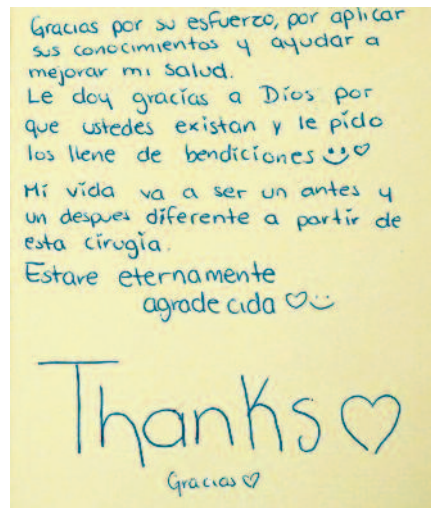 Gracias por su esfuerzo, por aplicar
sus conocimientos y ayudar a
mejorar mi salud.
Le doy gracias a Dios por
que ustedes existan y le pido
los llene de bendiciones
Mi vida va a ser un antes y
un despues diferente a partir de
esta cirugía.
Estare eternamente
agradecida
Thanks
Gracias